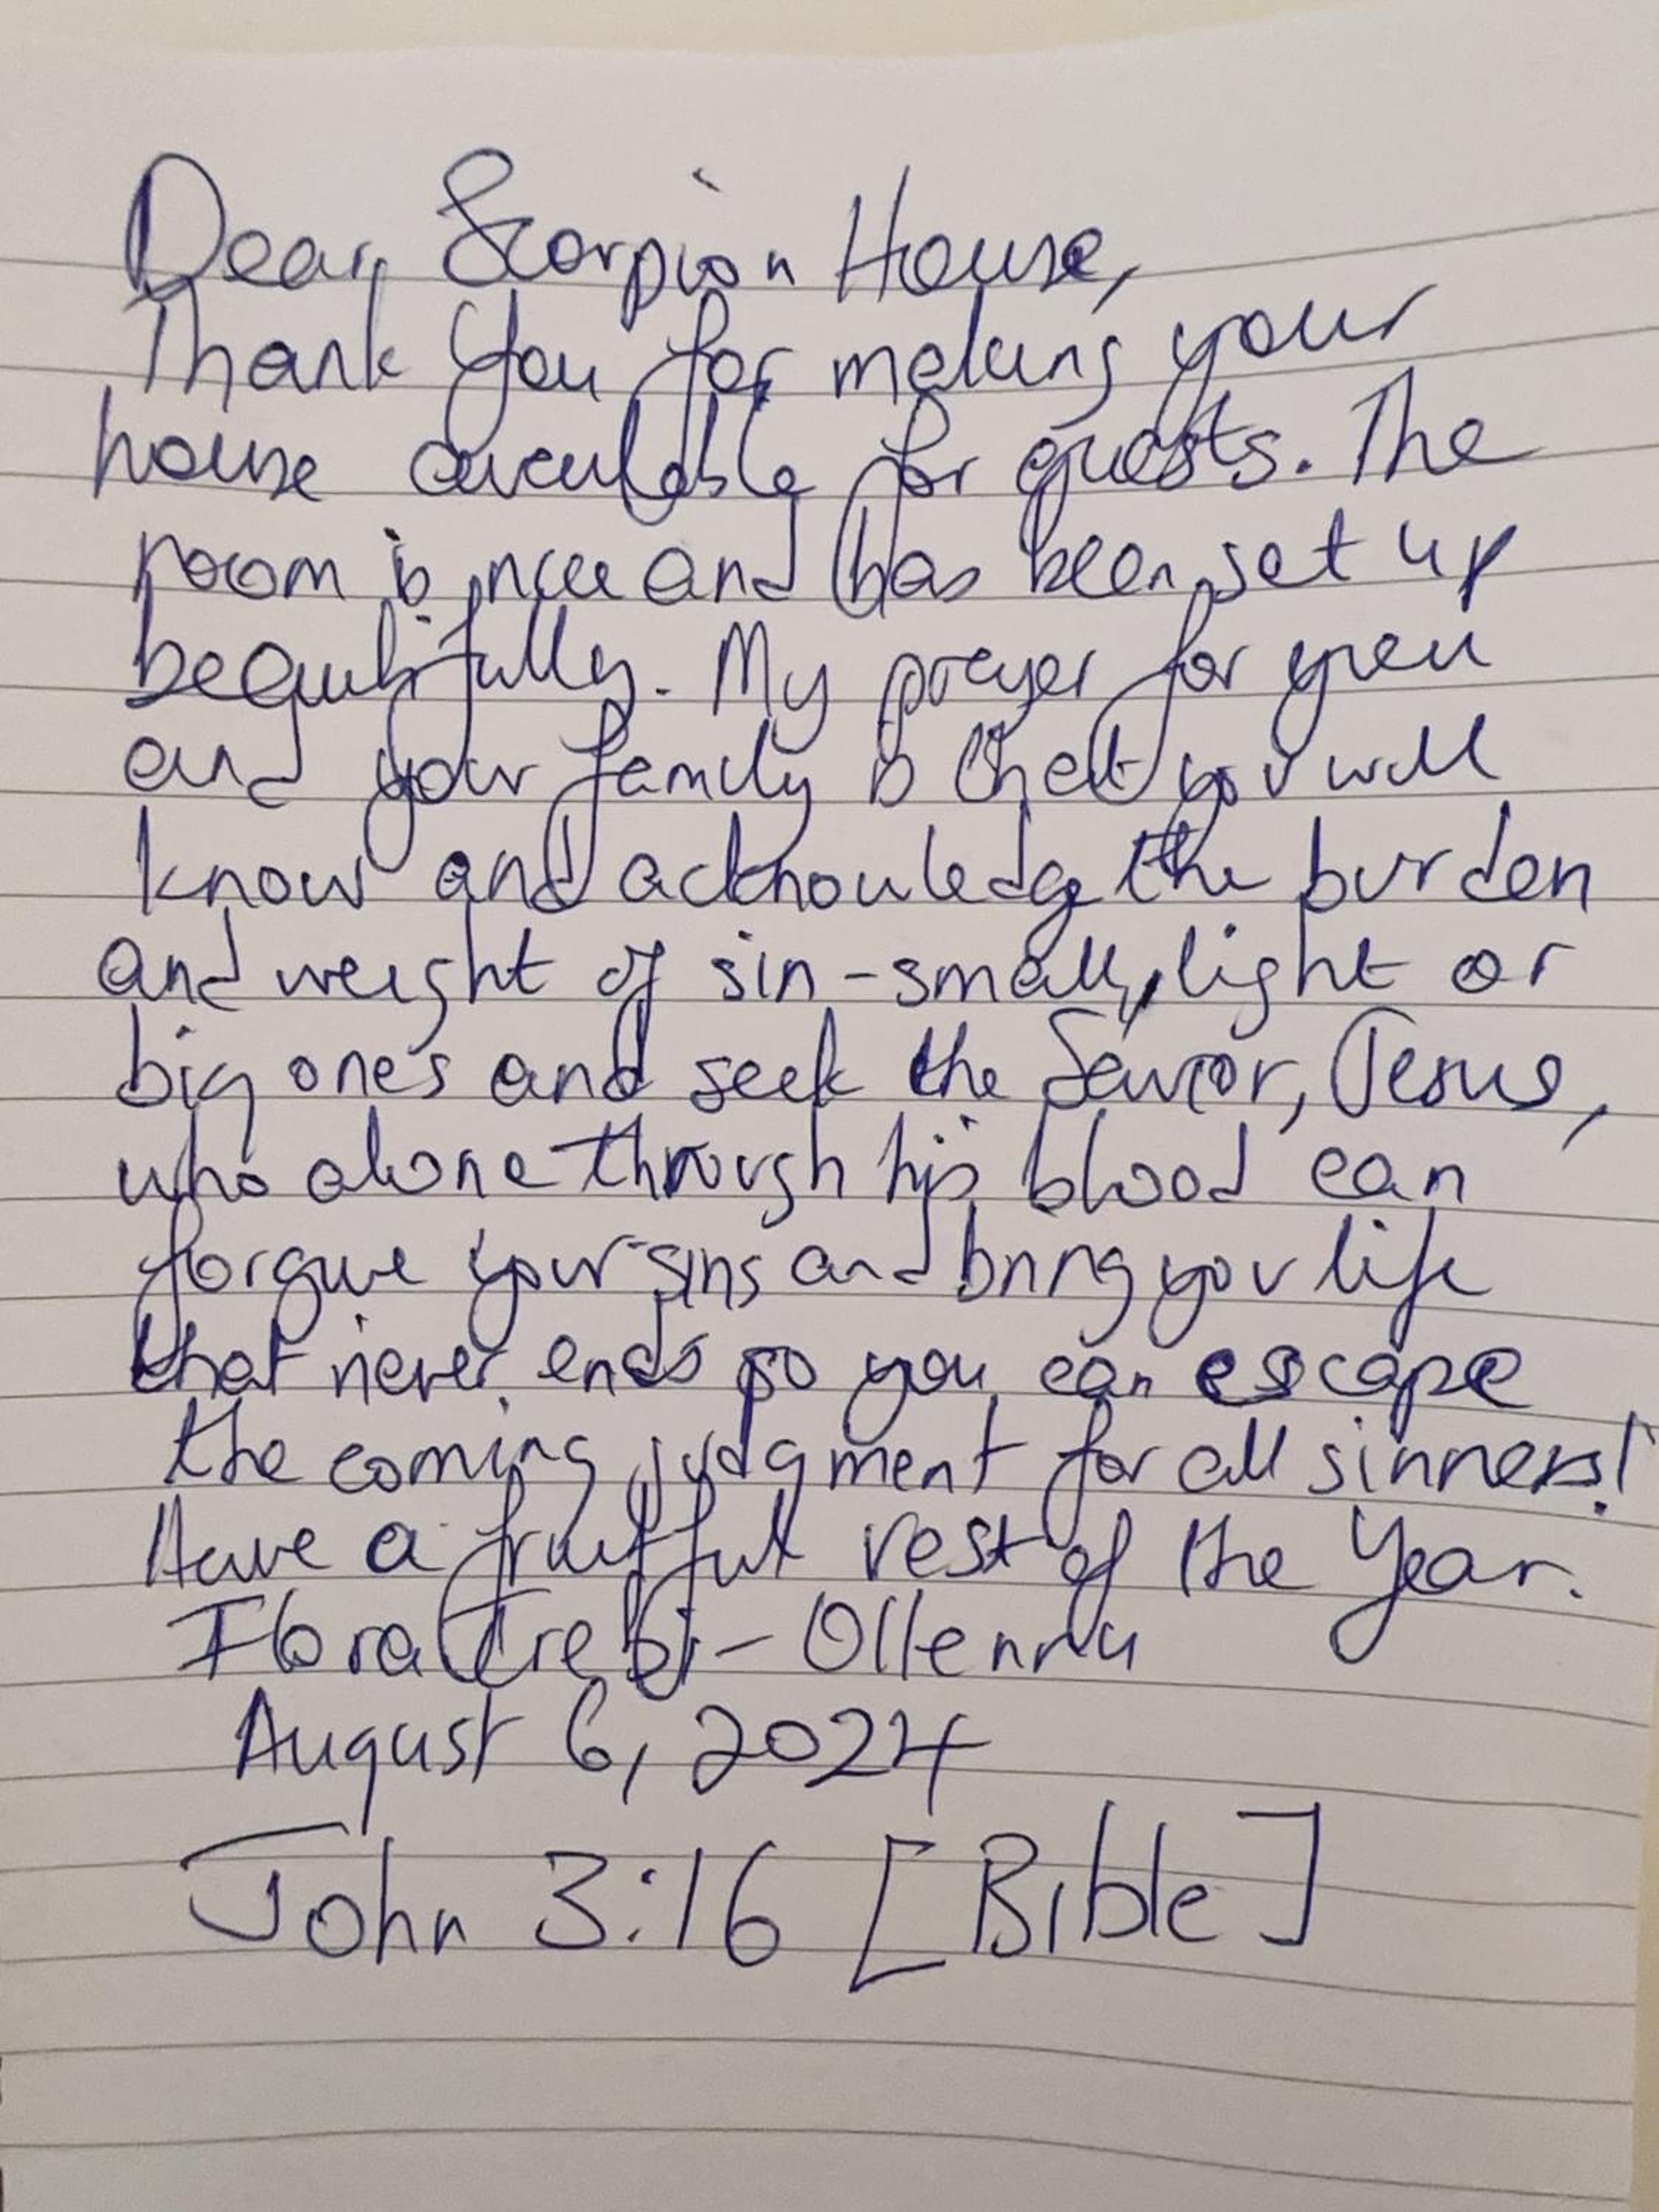 Dear Scorpion House,
Thank You for making your
house available for guests. The
room is nice and has been set up
beautifully. My prayer for you
and your family is that you will
know and acknowledge the burden
and weight of sin - small, light or
big ones and seek the Savior, Jesus,
who alone through his blood can
forgive your sins and bring you life
that never ends so you can escape
the coming judgment for all sinners!
Have a fruitful rest of the Year.
Trebi-Ollennu
August 6, 2024
John 3:16 [Bible]